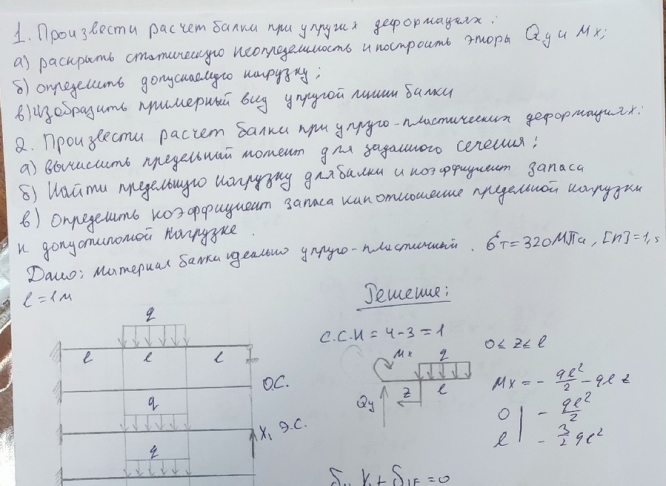 1. Произвести расчет балки при упругих деформациях:
а) раскрыть статическую неопределимость и построить эпюры Qy и Mx;
б) определить допускаемую нагрузку;
в) изобразить примерный вид упругой линии балки
2. Произвести расчет балки при упруго-пластических деформациях:
а) вычислить предельный момент для заданного сечения;
б) Найти предельную нагрузку для балки и коэффициент запаса
в) Определить коэффициент запаса как отношение предельной нагрузки
к допустимой нагрузке.
Дано: Материал балки идеально упруго-пластичный. σт=320МПа, [n]=1,5
l=1м
Решение:
q
l l l
О.С.
q
X₁ Э.С.
q
С.С.Н = 4-3=1
0≤z≤l
Mx q
Qy z l
Mx = - ql²/2 - qlz
0 | - ql²/2
l | - 3/2 ql²
δ₁₁X₁+δ₁F=0